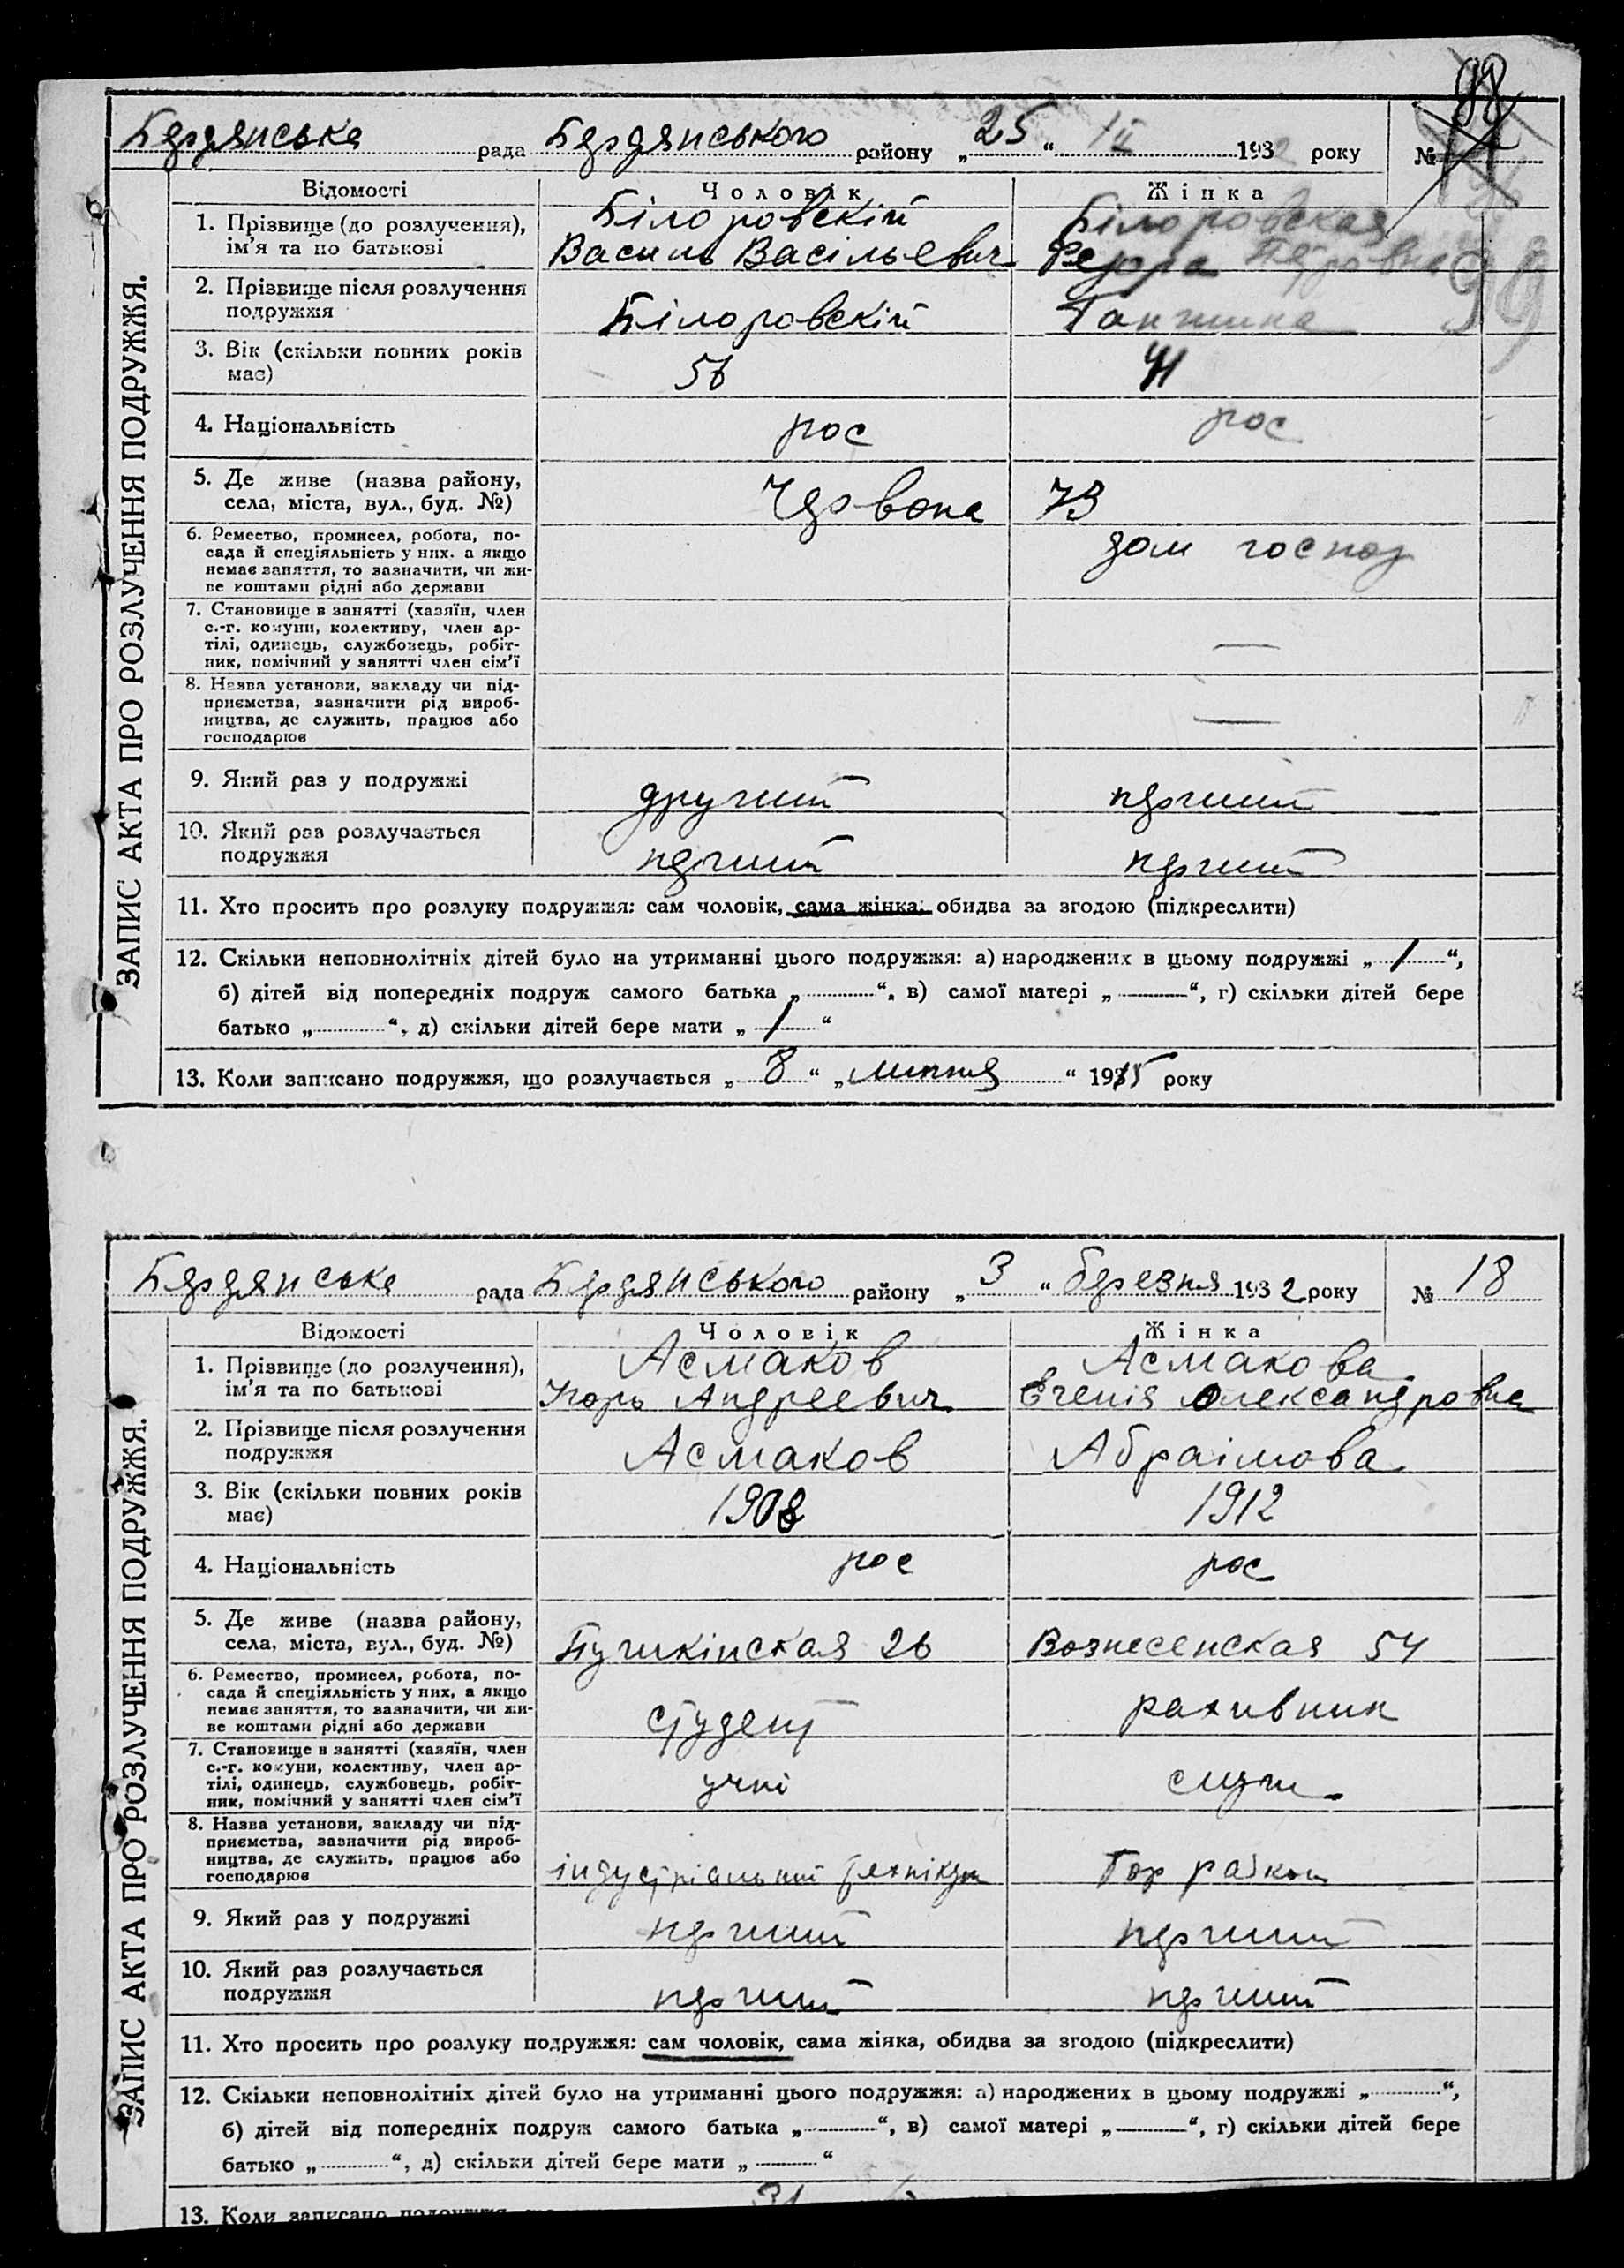 Бердянська рада Бердянського району „25“ ІІ 1932 року №
98
Відомості Чоловік Жінка
1. Прізвище (до розлучення), ім'я та по батькові
Білоровскій
Василь Васільевич
Білоровская
Федора Петровна
99
2. Прізвище після розлучення подружжя
Білоровскій
3. Вік (скільки повних років має)
56
41
4. Національність
рос
рос
5. Де живе (назва району, села, міста, вул., буд. №)
Червона 73
6. Ремество, промисел, робота, по-
сада й спеціяльність у них. а якщо
немає заняття, то зазначити, чи жи-
ве коштами рідні або держави
дом господ
7. Становище в занятті (хазяїн, член
с.-г. комуни, колективу, член ар-
тілі, одинець, службовець, робіт-
ник, помічний у занятті член сім'ї
—
8. Назва установи, закладу чи під-
приємства, зазначити рід вироб-
ництва, де служить, працює або
господарює
—
9. Який раз у подружжі
другий
перший
10. Який раз розлучається подружжя
перший
перший
11. Хто просить про розлуку подружжя: сам чоловік, сама жінка, обидва за згодою (підкреслити)
12. Скільки неповнолітніх дітей було на утриманні цього подружжя: а) народжених в цьому подружжі „1“,
б) дітей від попередніх подруж самого батька „—“, в) самої матері „—“, г) скільки дітей бере
батько „—“, д) скільки дітей бере мати „1“
13. Коли записано подружжя, що розлучається „8“ „липня“ 1915 року
ЗАПИС АКТА ПРО РОЗЛУЧЕННЯ ПОДРУЖЖЯ.
Бердянська рада Бердянського району „3“ березня 1932 року № 18
Відомості Чоловік Жінка
1. Прізвище (до розлучення), ім'я та по батькові
Асмаков
Ігорь Андреевич
Асмакова
Євгенія Олександровна
2. Прізвище після розлучення подружжя
Асмаков
Абраімова
3. Вік (скільки повних років має)
1908
1912
4. Національність
рос
рос
5. Де живе (назва району, села, міста, вул., буд. №)
Пушкінская 26
Вознесенская 54
6. Ремество, промисел, робота, по-
сада й спеціяльність у них, а якщо
немає заняття, то зазначити, чи жи-
ве коштами рідні або держави
студент
рахивник
7. Становище в занятті (хазяїн, член
с.-г. комуни, колективу, член ар-
тілі, одинець, службовець, робіт-
ник, помічний у занятті член сім'ї
учні
служ
8. Назва установи, закладу чи під-
приємства, зазначити рід вироб-
ництва, де служить, працює або
господарює
індустріальний технікум
9. Який раз у подружжі
перший
перший
10. Який раз розлучається подружжя
перший
перший
11. Хто просить про розлуку подружжя: сам чоловік, сама жінка, обидва за згодою (підкреслити)
12. Скільки неповнолітніх дітей було на утриманні цього подружжя: а) народжених в цьому подружжі „—“,
б) дітей від попередніх подруж самого батька „—“, в) самої матері „—“, г) скільки дітей бере
батько „—“, д) скільки дітей бере мати „—“
13. Коли записано подружжя 31
ЗАПИС АКТА ПРО РОЗЛУЧЕННЯ ПОДРУЖЖЯ.